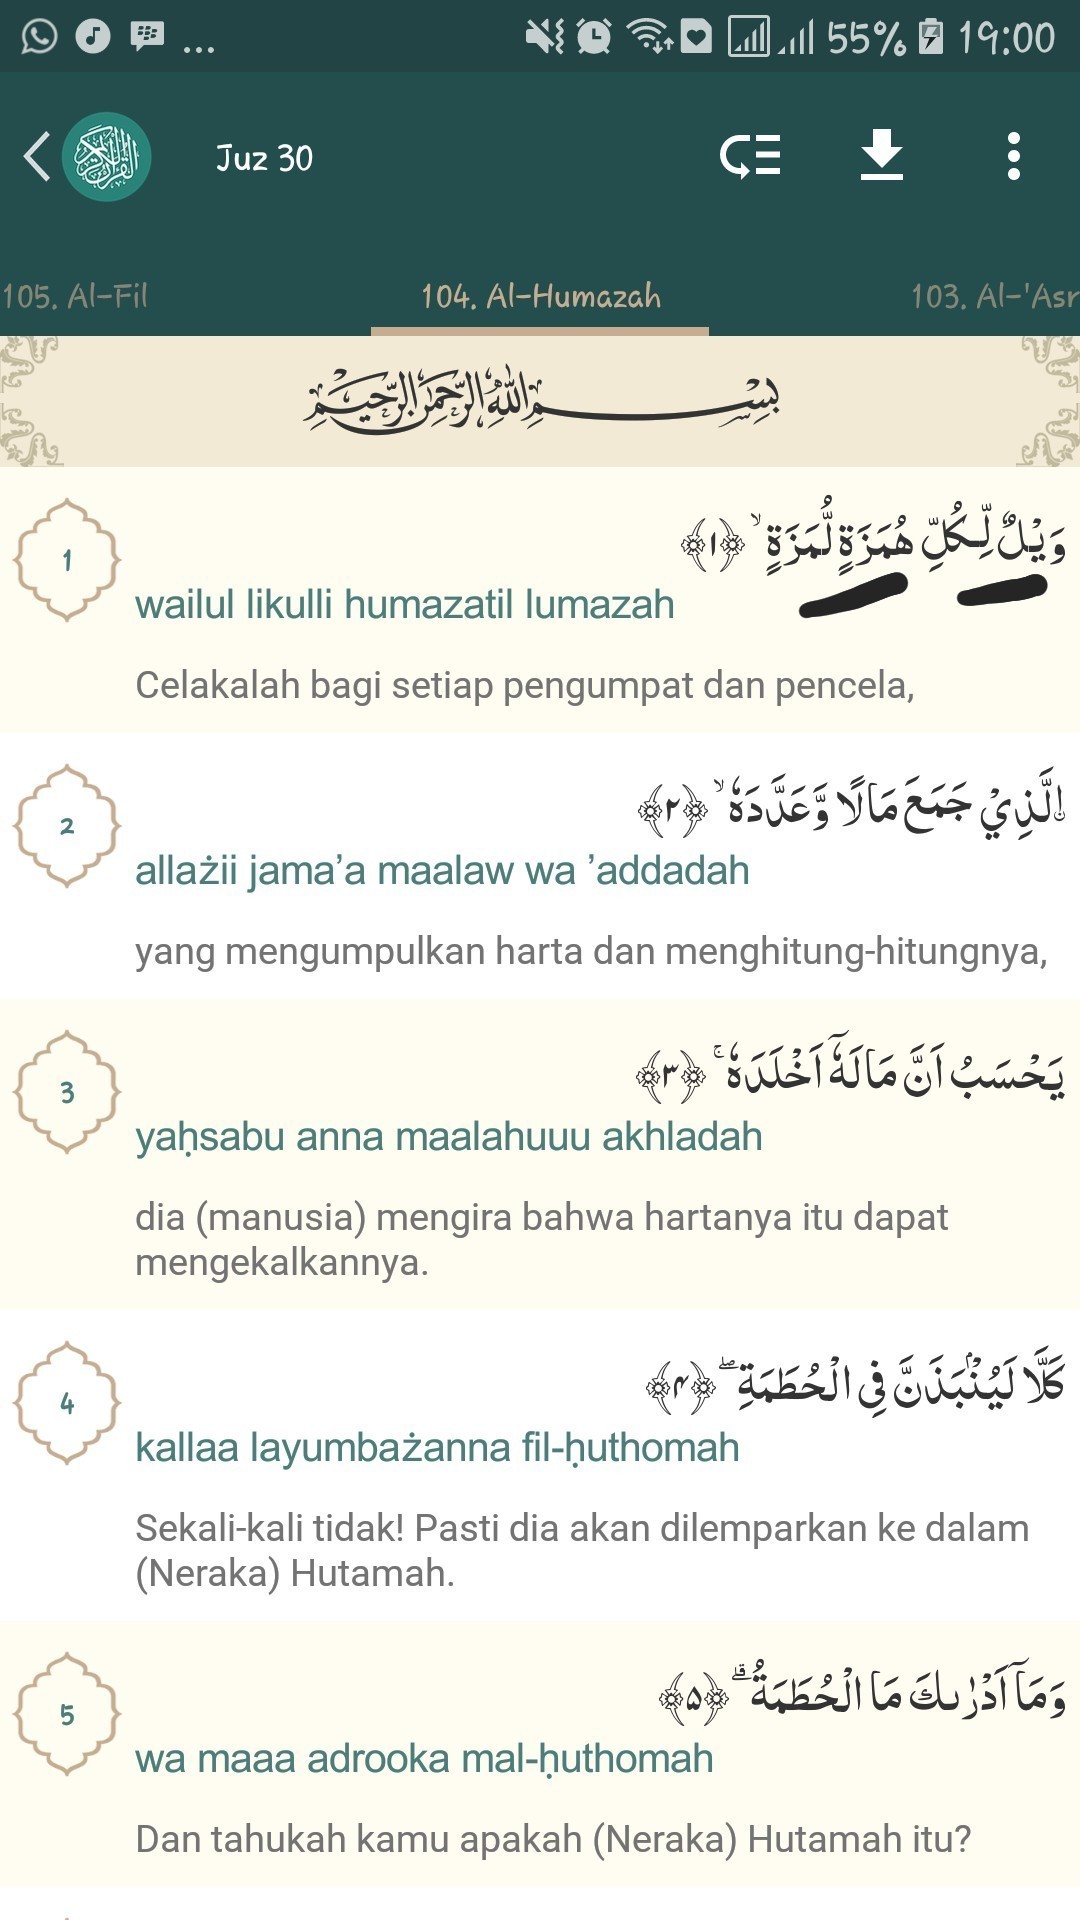 ... 55% 19:00
Juz 30
105. Al-Fil 104. Al-Humazah 103. Al-'Asr
بِسْمِ اللّٰهِ الرَّحْمٰنِ الرَّحِيْمِ
1
وَيْلٌ لِّكُلِّ هُمَزَةٍ لُّمَزَةٍ ۙ ﴿١﴾
wailul likulli humazatil lumazah
Celakalah bagi setiap pengumpat dan pencela,
2
ۨالَّذِيْ جَمَعَ مَالًا وَّعَدَّدَهٗ ۙ ﴿٢﴾
allażii jama’a maalaw wa ’addadah
yang mengumpulkan harta dan menghitung-hitungnya,
3
يَحْسَبُ اَنَّ مَالَهٗٓ اَخْلَدَهٗ ۚ ﴿٣﴾
yaḥsabu anna maalahuuu akhladah
dia (manusia) mengira bahwa hartanya itu dapat
mengekalkannya.
4
كَلَّا لَيُنْۢبَذَنَّ فِى الْحُطَمَةِ ۖ ﴿۴﴾
kallaa layumbażanna fil-ḥuthomah
Sekali-kali tidak! Pasti dia akan dilemparkan ke dalam
(Neraka) Hutamah.
5
وَمَآ اَدْرٰىكَ مَا الْحُطَمَةُ ۗ ﴿۵﴾
wa maaa adrooka mal-ḥuthomah
Dan tahukah kamu apakah (Neraka) Hutamah itu?